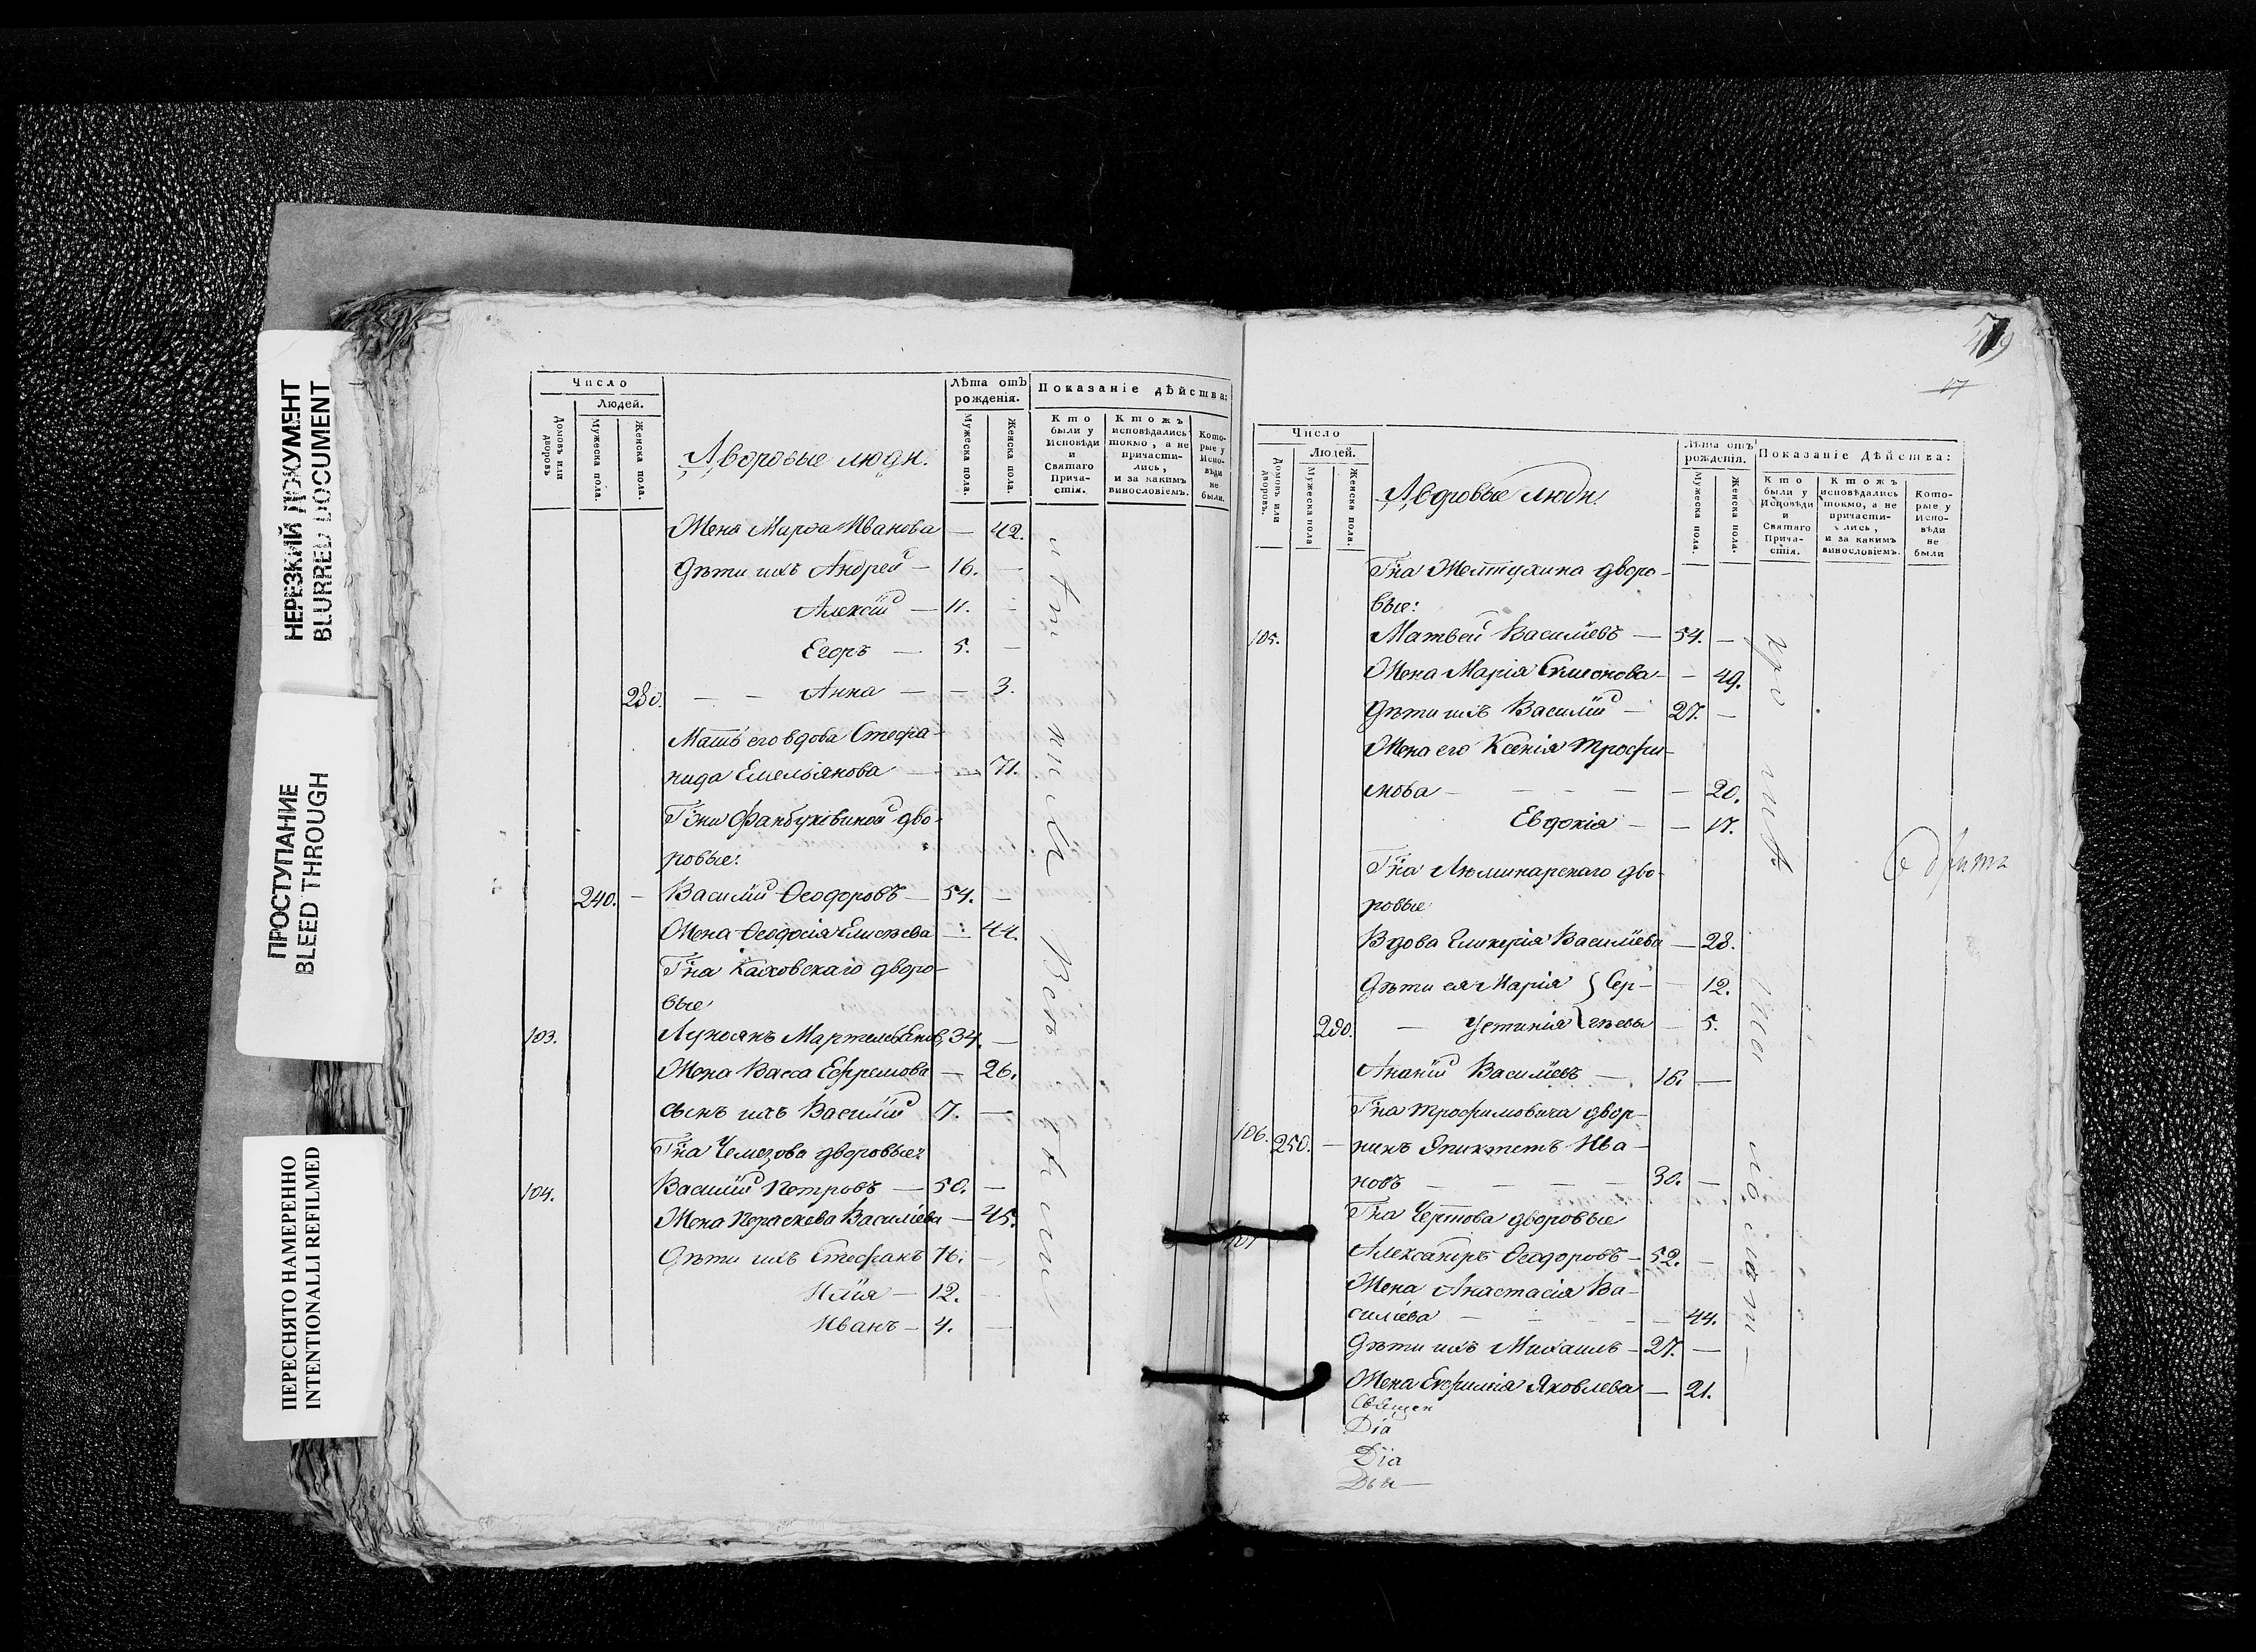 НЕРЕЗКИЙ ДОКУМЕНТ
BLURRED DOCUMENT
ПРОСТУПАНИЕ
BLEED THROUGH
ПЕРЕСНЯТО НАМЕРЕННО
INTENTIONALLI REFILMED
Число
Людей.
Домовъ или дворовъ
Мужеска пола.
Женска пола.
Дворовые люди.
Лѣта отъ рожденія.
Мужеска пола.
Женска пола.
Показаніе дѣйства:
Кто были у Исповѣди и Святаго Прича-стія.
Ктожъ исповѣдались токмо, а не причасти-лись, и за какимъ винословіемъ.
Кото-рые у Испо-вѣди не были.
Жена Марѳа Иванова — 42.
Дѣти ихъ Андрей — 16. —
Алексій — 11. —
Егоръ — 5. —
230. — — Анна — — 3.
Мать его вдова Стефа-
нида Емельянова — 71.
Гжи Фанбуксвиной дво-
ровые:
240. — Василій Ѳеодоровъ — 54. —
Жена Ѳеодосія Елисѣева — 44.
Гна Каховскаго дворо-
вые
103. Лукіянъ Мартемьяновъ 34. —
Жена Васса Ефремова — 26.
сынъ ихъ Василій 7. —
Гна Чемезова дворовые:
104. Василій Петровъ — 50. —
Жена Параскева Василіева — 45.
Дѣти ихъ Стефанъ 16. —
Илія — 12. —
Иванъ — 4. —
17
Число
Людей.
Домовъ или дворовъ.
Мужеска пола
Женска пола.
Дворовые люди
Лѣта отъ рожденія.
Мужеска пола.
Женска пола.
Показаніе дѣйства:
Кто были у Исповѣди и Святаго Прича-стія.
Ктожъ исповѣдались токмо, а не причасти-лись, и за какимъ винословіемъ.
Кото-рые у Испо-вѣди не были
Гна Желтухина дворо-
вые:
105. Матвей Василіевъ — 54. —
Жена Марія Симеонова — — 49.
Дѣти ихъ Василій — 27. —
Жена его Ксенія Трофи-
мова — — — — — 20.
Евдокія — — 17.
Гна Люминарскаго дво-
ровые
Вдова Гликерія Василіева — 28.
Дѣти ея Марія } Сер- — 12.
280. — Устинія } гѣевы — 5.
Ананій Василіевъ — 16. —
Гна Трофимовича двор-
106. 250. — никъ Эпиктетъ Ива-
новъ — — — — 30. —
Гна Чертова дворовые
107 Александръ Ѳеодоровъ — 52. —
Жена Анастасія Ва-
силіева — — — — 44.
Дѣти ихъ Михаилъ — 27. —
Жена Евфимія Яковлева — 21.
Священ
Діа
Діа